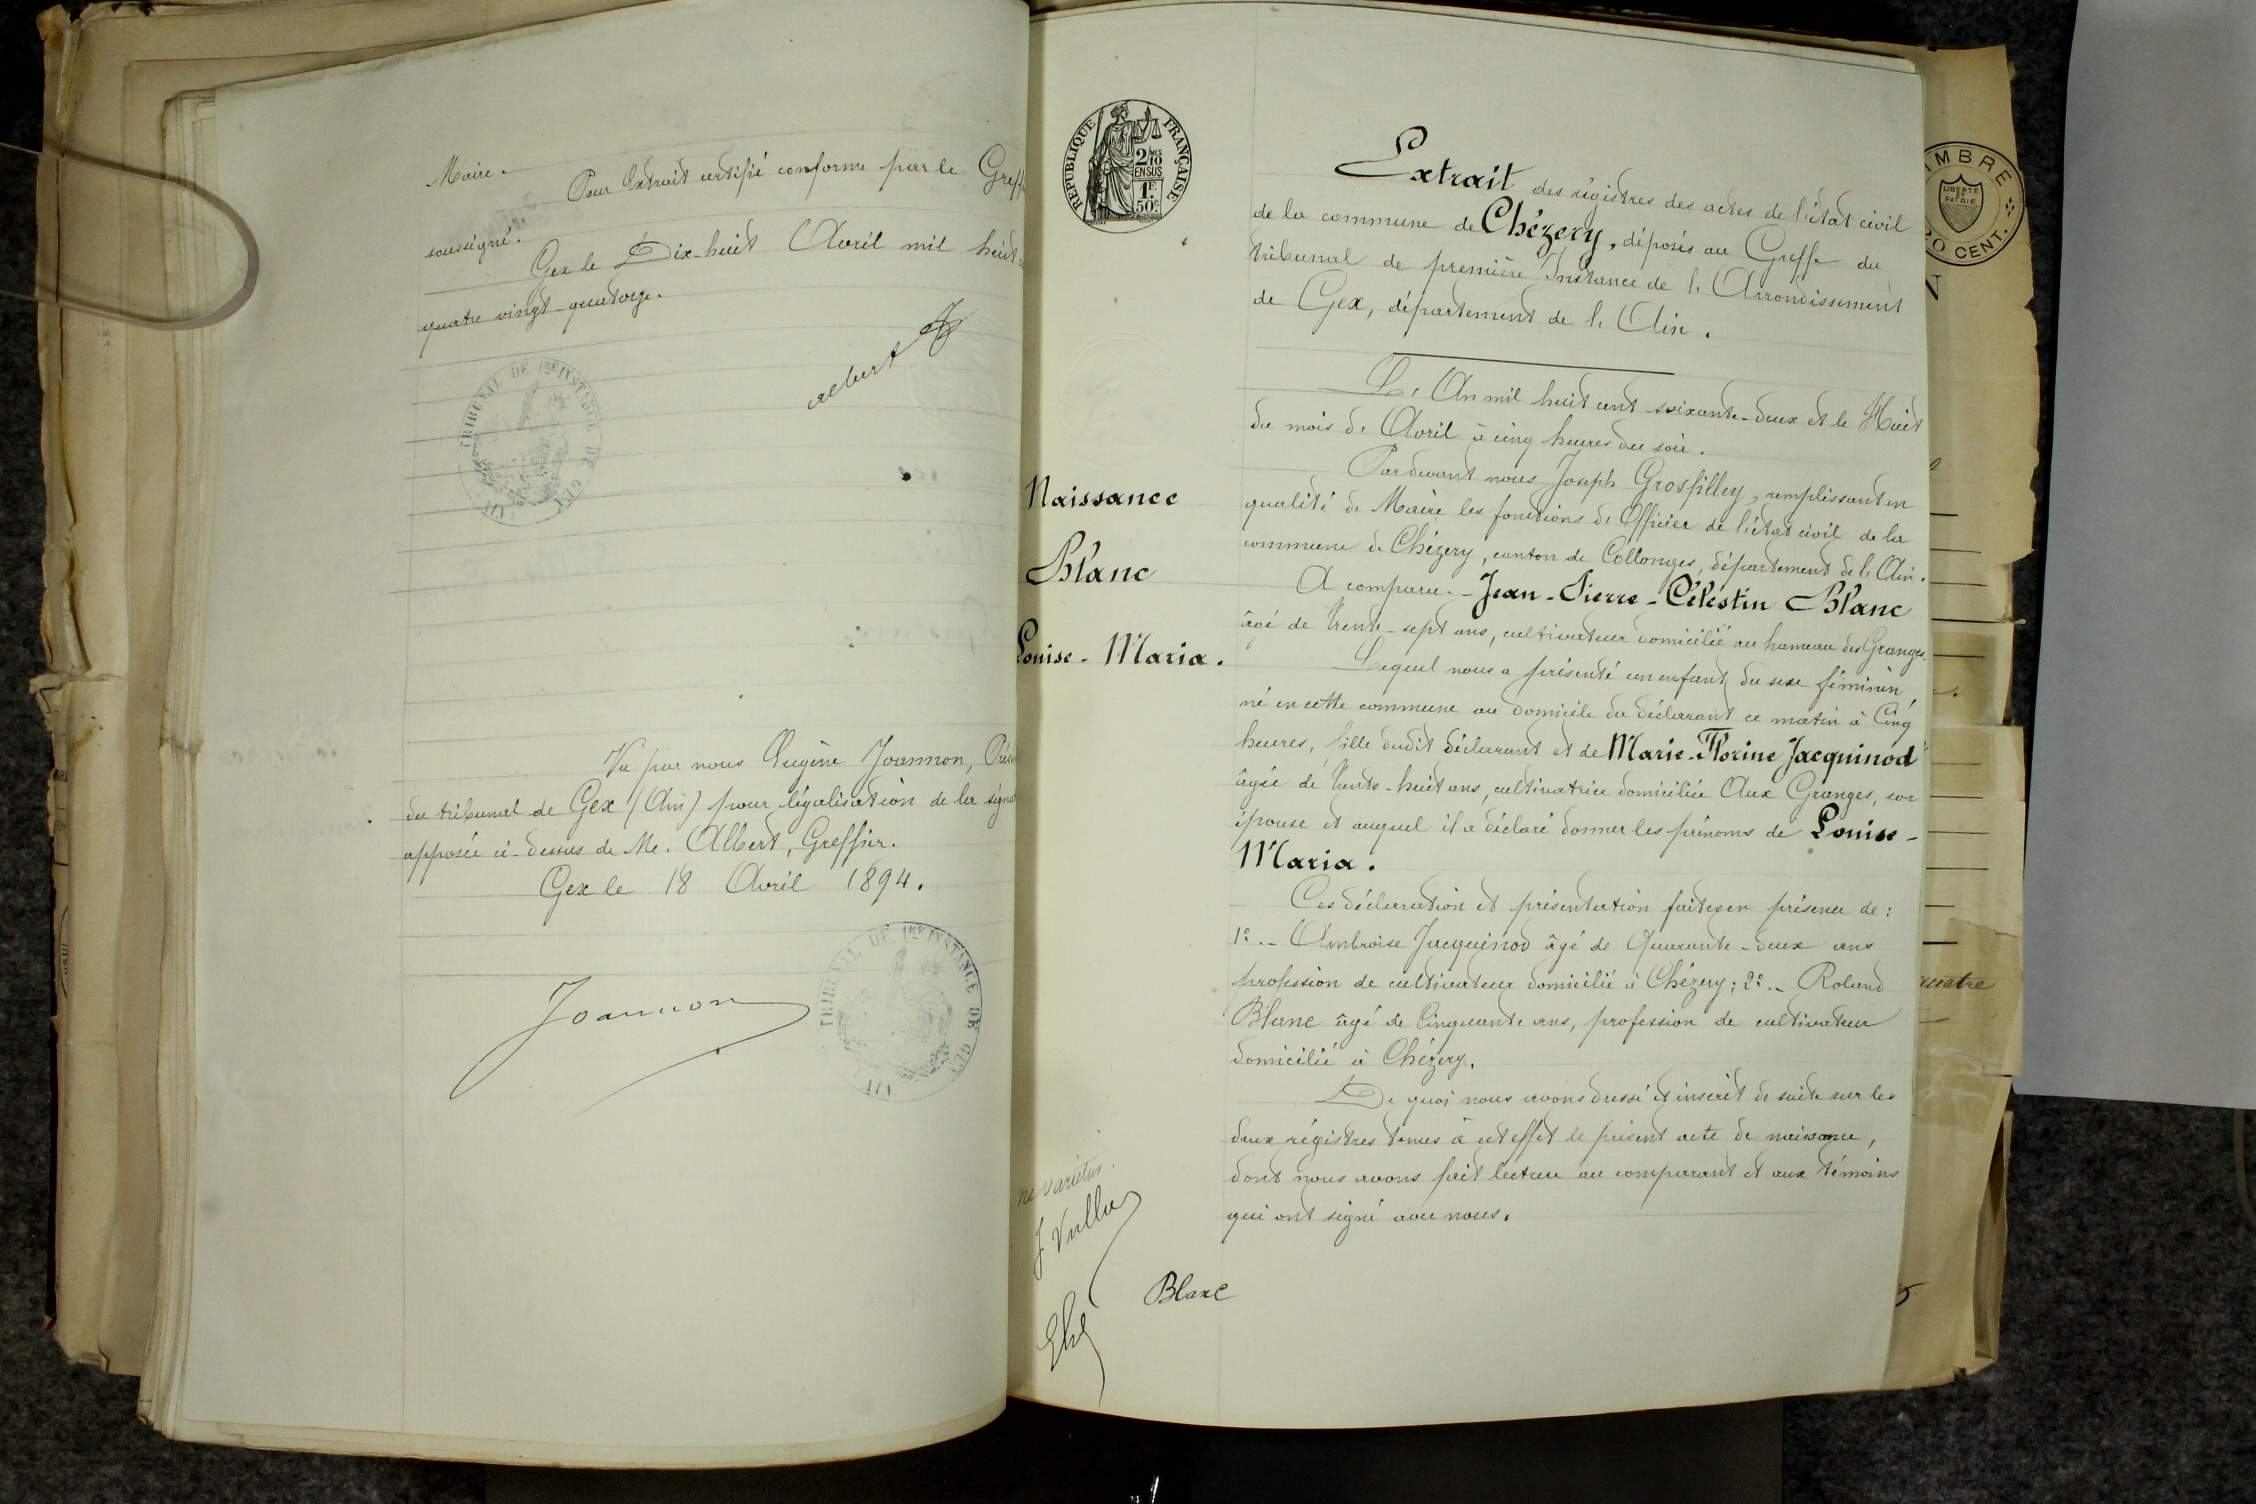 Maire.
Pour Extrait certifié conforme par le Greff
soussigné.
Gex le Dix-huit Avril mil huit c
quatre vingt-quatorze.
albert
TRIBUNAL DE 1RE INSTANCE DE GEX
Vu par nous Eugène Joannon, Prési
du tribunal de Gex (Ain) pour légalisation de la signa
apposée ci-dessus de Me. Albert, Greffier.
Gex le 18 Avril 1894.
Joannon
TRIBUNAL DE 1RE INSTANCE DE GEX
RÉPUBLIQUE FRANÇAISE
2/10 MES
EN SUS
1F.
50c
Extrait des régistres des actes de l'état civil
de la commune de Chézery, déposés au Greffe du
tribunal de première Instance de l'Arrondissement
de Gex, département de l'Ain.
L'An mil huit cent soixante-deux et le Huit
du mois d'Avril à cinq heures du soir.
Pardevant nous Joseph Grosfilley, remplissant en
qualité de Maire les fonctions d'Officier de l'état civil de la
commune de Chézery, canton de Collonges, département de l'Ain.
A comparu.- Jean-Pierre-Célestin Blanc
âgé de trente-sept ans, cultivateur domicilié au hameau des Granges.
Lequel nous a présenté un enfant du sexe féminin
né en cette commune au domicile du déclarant ce matin à Cinq
heures, fille dudit déclarant et de Marie-Florine Jacquinod
âgée de trente-huit ans, cultivatrice domiciliée Aux Granges, son
épouse et auquel il a déclaré donner les prénoms de Louise-
Maria.
Ces déclaration et présentation faites en présence de :
1°.- Ambroise Jacquinod âgé de Quarante-deux ans
profession de cultivateur domicilié à Chézery; 2°.- Roland
Blanc âgé de Cinquante ans, profession de cultivateur
domicilié à Chézery.
De quoi nous avons dressé et inscrit de suite sur les
deux régistres tenus à cet effet le présent acte de naissance,
dont nous avons fait lecture au comparant et aux témoins
qui ont signé avec nous.
Naissance
Blanc
Louise-Maria.
ne varietur.
Blanc
TIMBRE
LIBERTÉ ET PATRIE
CENT.
quatre